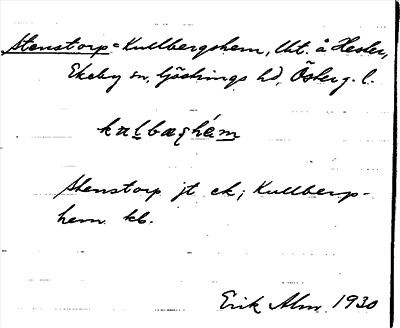 Stenstorp = Kullbergshem, Utt. å Hesler,
Ekeby sn, Göstrings hd, Österg. l.
kalbæʀhém
Stenstorp jt ek; Kullbergs-
hem kb.
Erik Alm 1930